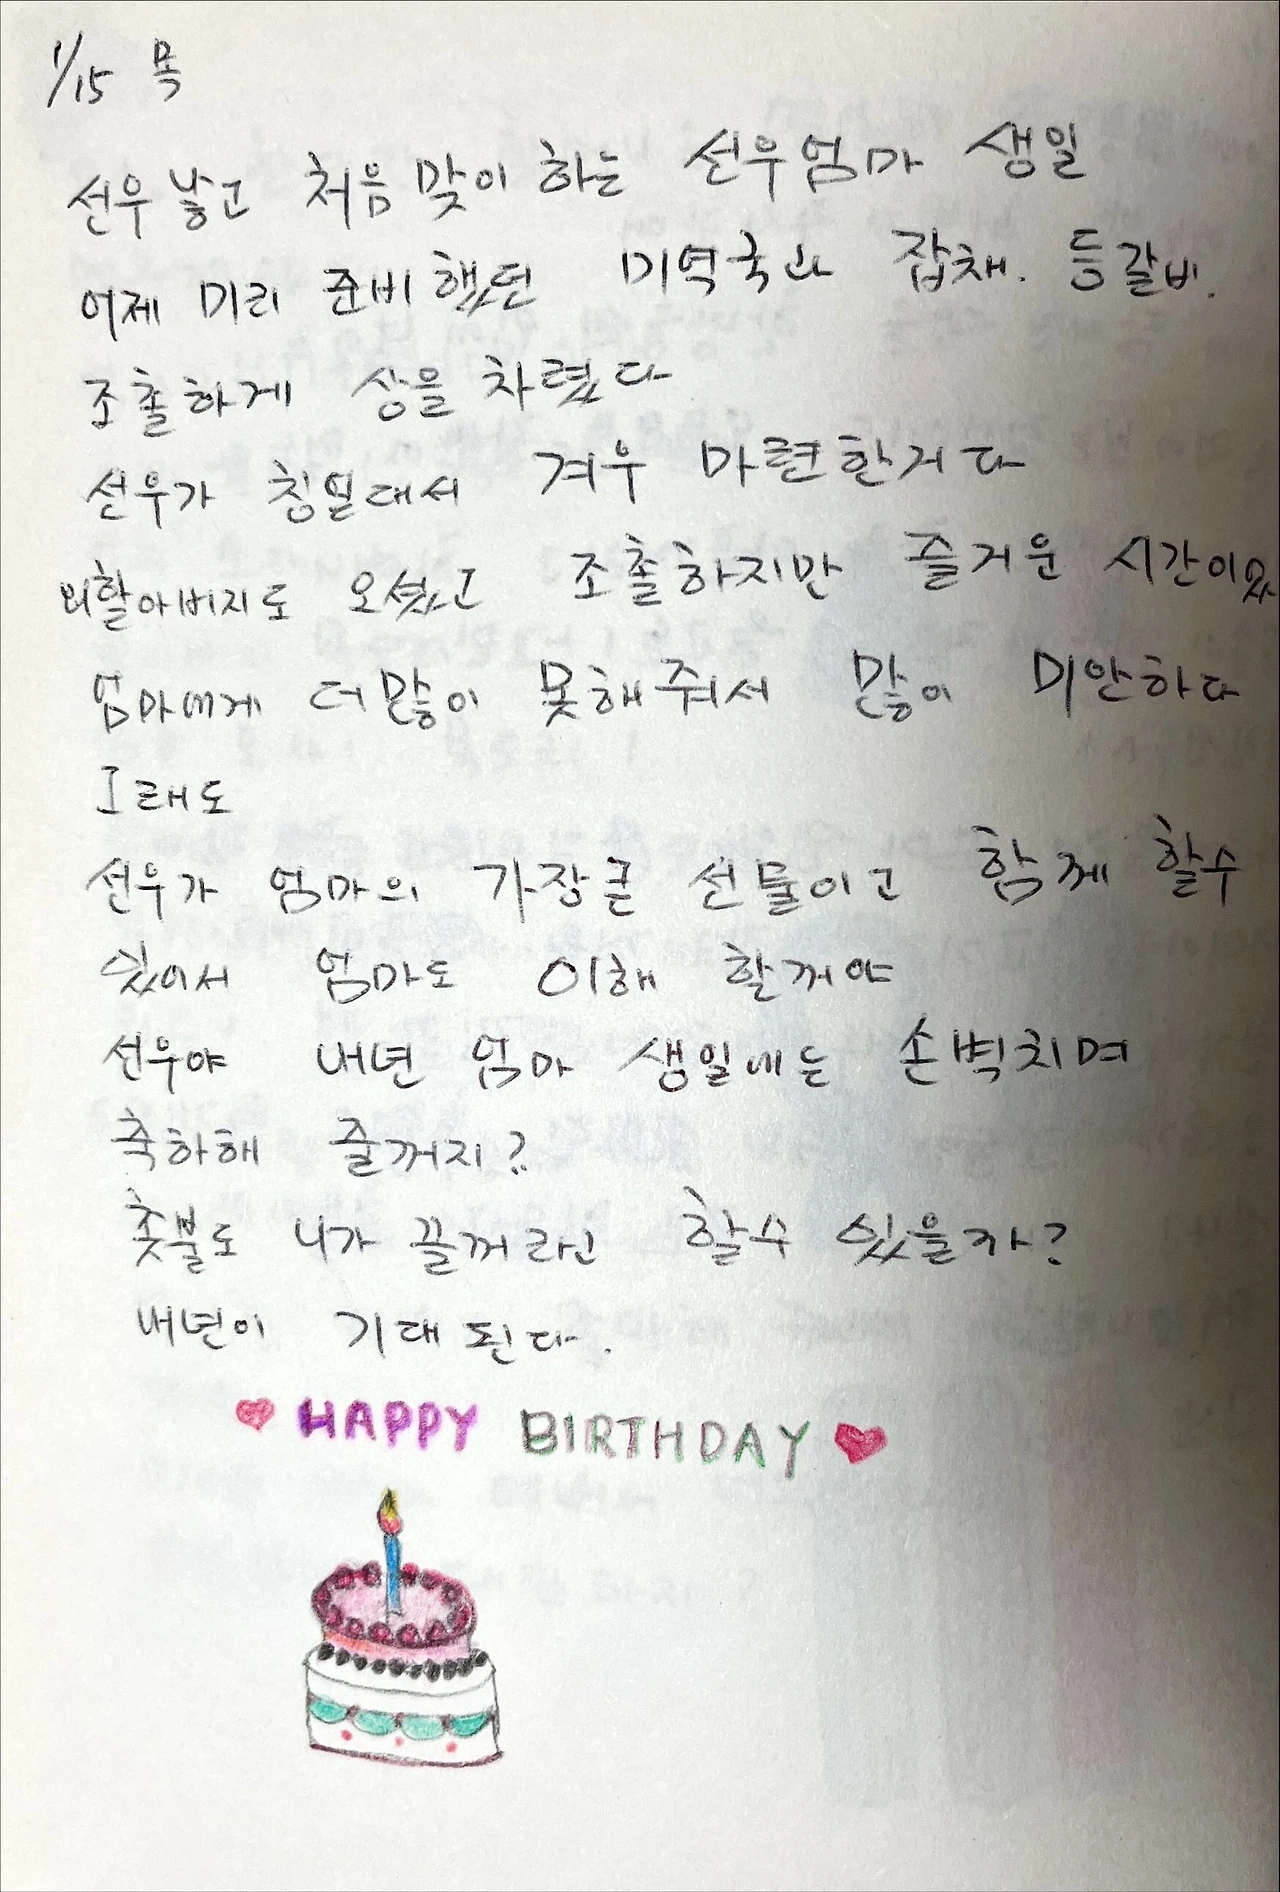 1/15 목
선우 낳고 처음 맞이 하는 선우엄마 생일
어제 미리 준비했던 미역국과 잡채. 등갈비.
조촐하게 상을 차렸다
선우가 칭얼대서 겨우 마련한거다
외할아버지도 오셨고 조촐하지만 즐거운 시간이었
엄마에게 더많이 못해줘서 많이 미안하다
그래도
선우가 엄마의 가장큰 선물이고 함께 할수
있어서 엄마도 이해 할꺼야
선우야 내년 엄마 생일에는 손벽치며
축하해 줄꺼지?
촛불도 니가 끌꺼라고 할수 있을까?
내년이 기대된다.
HAPPY BIRTHDAY